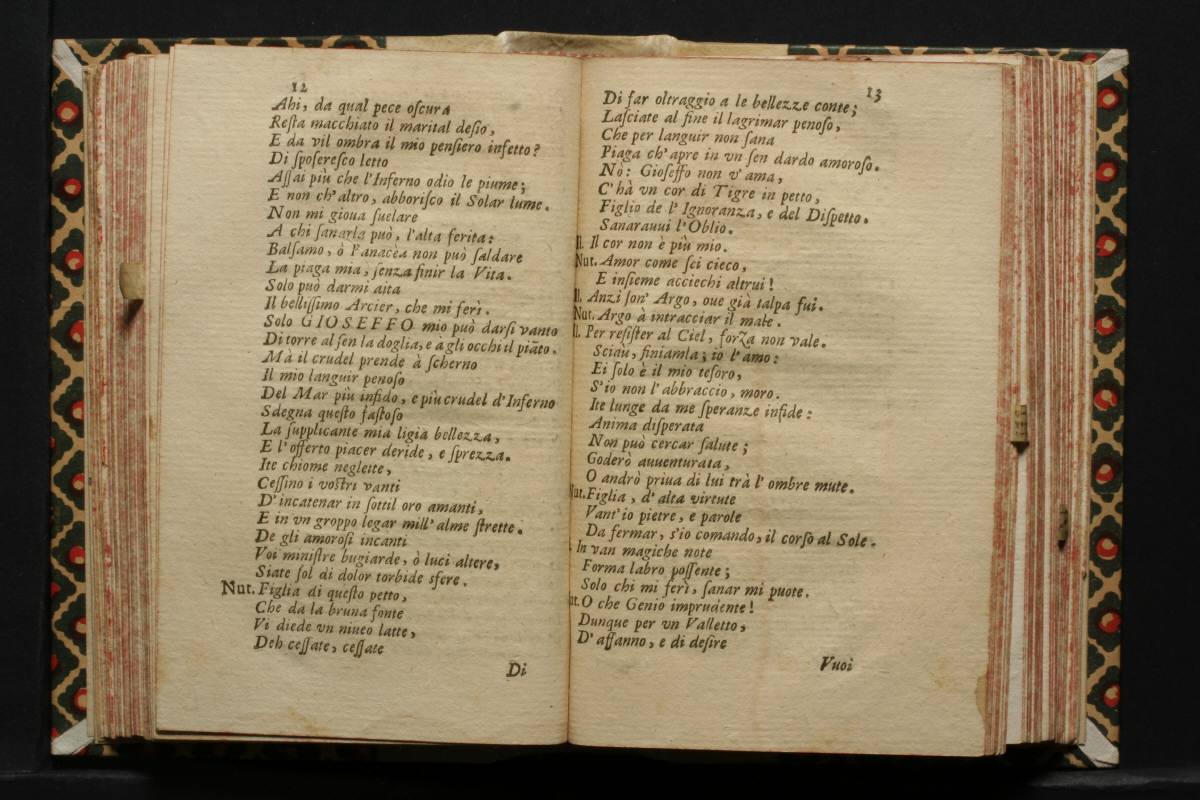 12
Ahi, da qual pece oſcura
Reſta macchiato il marital deſio,
E da vil ombra il mio penſiero infetto?
Di ſpoſereſco letto
Aſſai più che l'Inferno odio le piume;
E non ch'altro, abboriſco il Solar lume.
Non mi gioua ſuelare
A chi ſanarla può, l'alta ferita:
Balſamo, ò Panacèa non può ſaldare
La piaga mia, ſenza finir la Vita.
Solo può darmi aita
Il belliſſimo Arcier, che mi ferì.
Solo GIOSEFFO mio può darſi vanto
Di torre al ſen la doglia, e à gli occhi il piãto.
Mà il crudel prende à ſcherno
Il mio languir penoſo
Del Mar più infido, e più crudel d'Inferno
Sdegna queſto faſtoſo
La ſupplicante mia ligia bellezza,
E l'offerto piacer deride, e ſprezza.
Ite chiome neglette,
Ceſſino i voſtri vanti
D'incatenar in ſottil oro amanti,
E in vn groppo legar mill'alme ſtrette.
De gli amoroſi incanti
Voi miniſtre bugiarde, ò luci altere,
Siate ſol di dolor torbide sfere.
Nut. Figlia di queſto petto,
Che da la bruna fonte
Vi diede vn niueo latte,
Deh ceſſate, ceſſate
Di
13
Di far oltraggio a le bellezze conte;
Laſciate al fine il lagrimar penoſo,
Che per languir non ſana
Piaga ch'apre in vn ſen dardo amoroſo.
Nò: Gioſeffo non v'ama,
C'hà vn cor di Tigre in petto,
Figlio de l'Ignoranza, e del Diſpetto.
Sanarauui l'Oblio.
Il. Il cor non è più mio.
Nut. Amor come ſei cieco,
E inſieme acciechi altrui!
Il. Anzi ſon' Argo, oue già talpa fui.
Nut. Argo à intracciar il male.
Il. Per reſiſter al Ciel, forza non vale.
Sciaù, finiamla; io l'amo:
Ei ſolo è il mio teſoro,
S'io non l'abbraccio, moro.
Ite lunge da me ſperanze infide:
Anima diſperata
Non può cercar ſalute;
Goderò auuenturata,
O andrò priua di lui trà l'ombre mute.
Nut. Figlia, d'alta virtute
Vant'io pietre, e parole
Da fermar, s'io comando, il corſo al Sole.
In van magiche note
Forma labro poſſente;
Solo chi mi ferì, ſanar mi puote.
ut. O che Genio imprudente!
Dunque per vn Valletto,
D'affanno, e di deſire
Vuoi